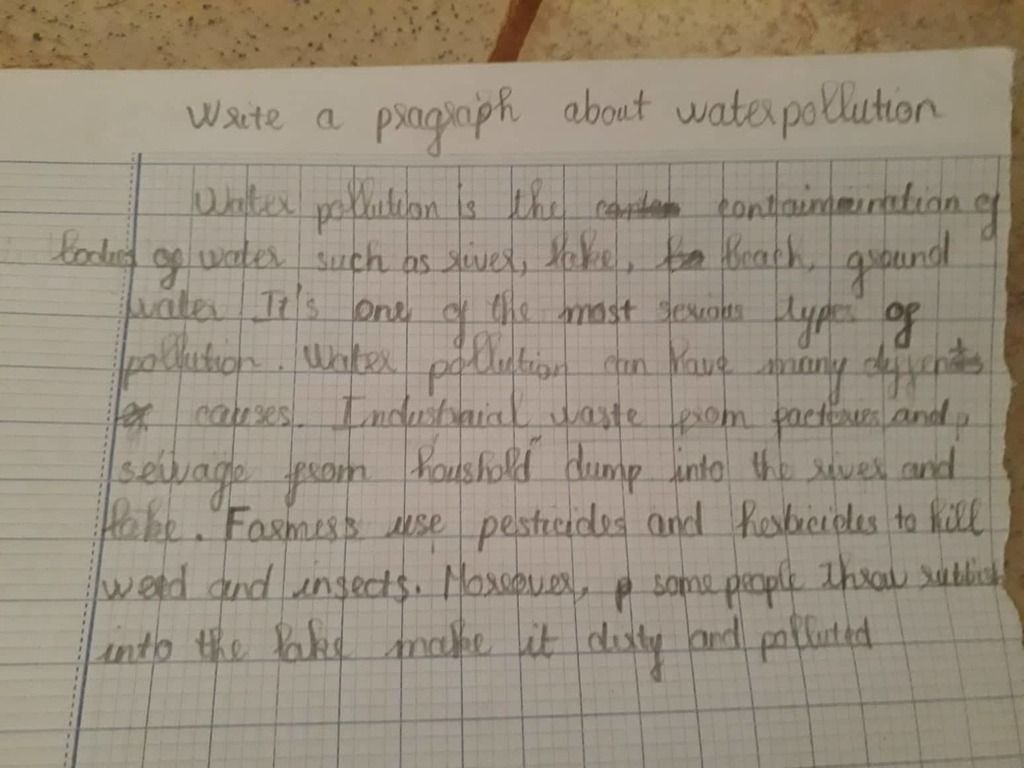 Write a pragraph about water pollution
Water pollution is the containmination of
bodies of water such as river, lake, beach, ground
water It's one of the most serious type of
pollution. Water pollution can have many dyffents
causes. Industriaial waste from factories and,
sewage from houshold dump into the river and
lake. Farmers use pesticides and herbicides to kill
weed and insects. Moreover, some people throw rubbish
into the lake make it dirty and polluted